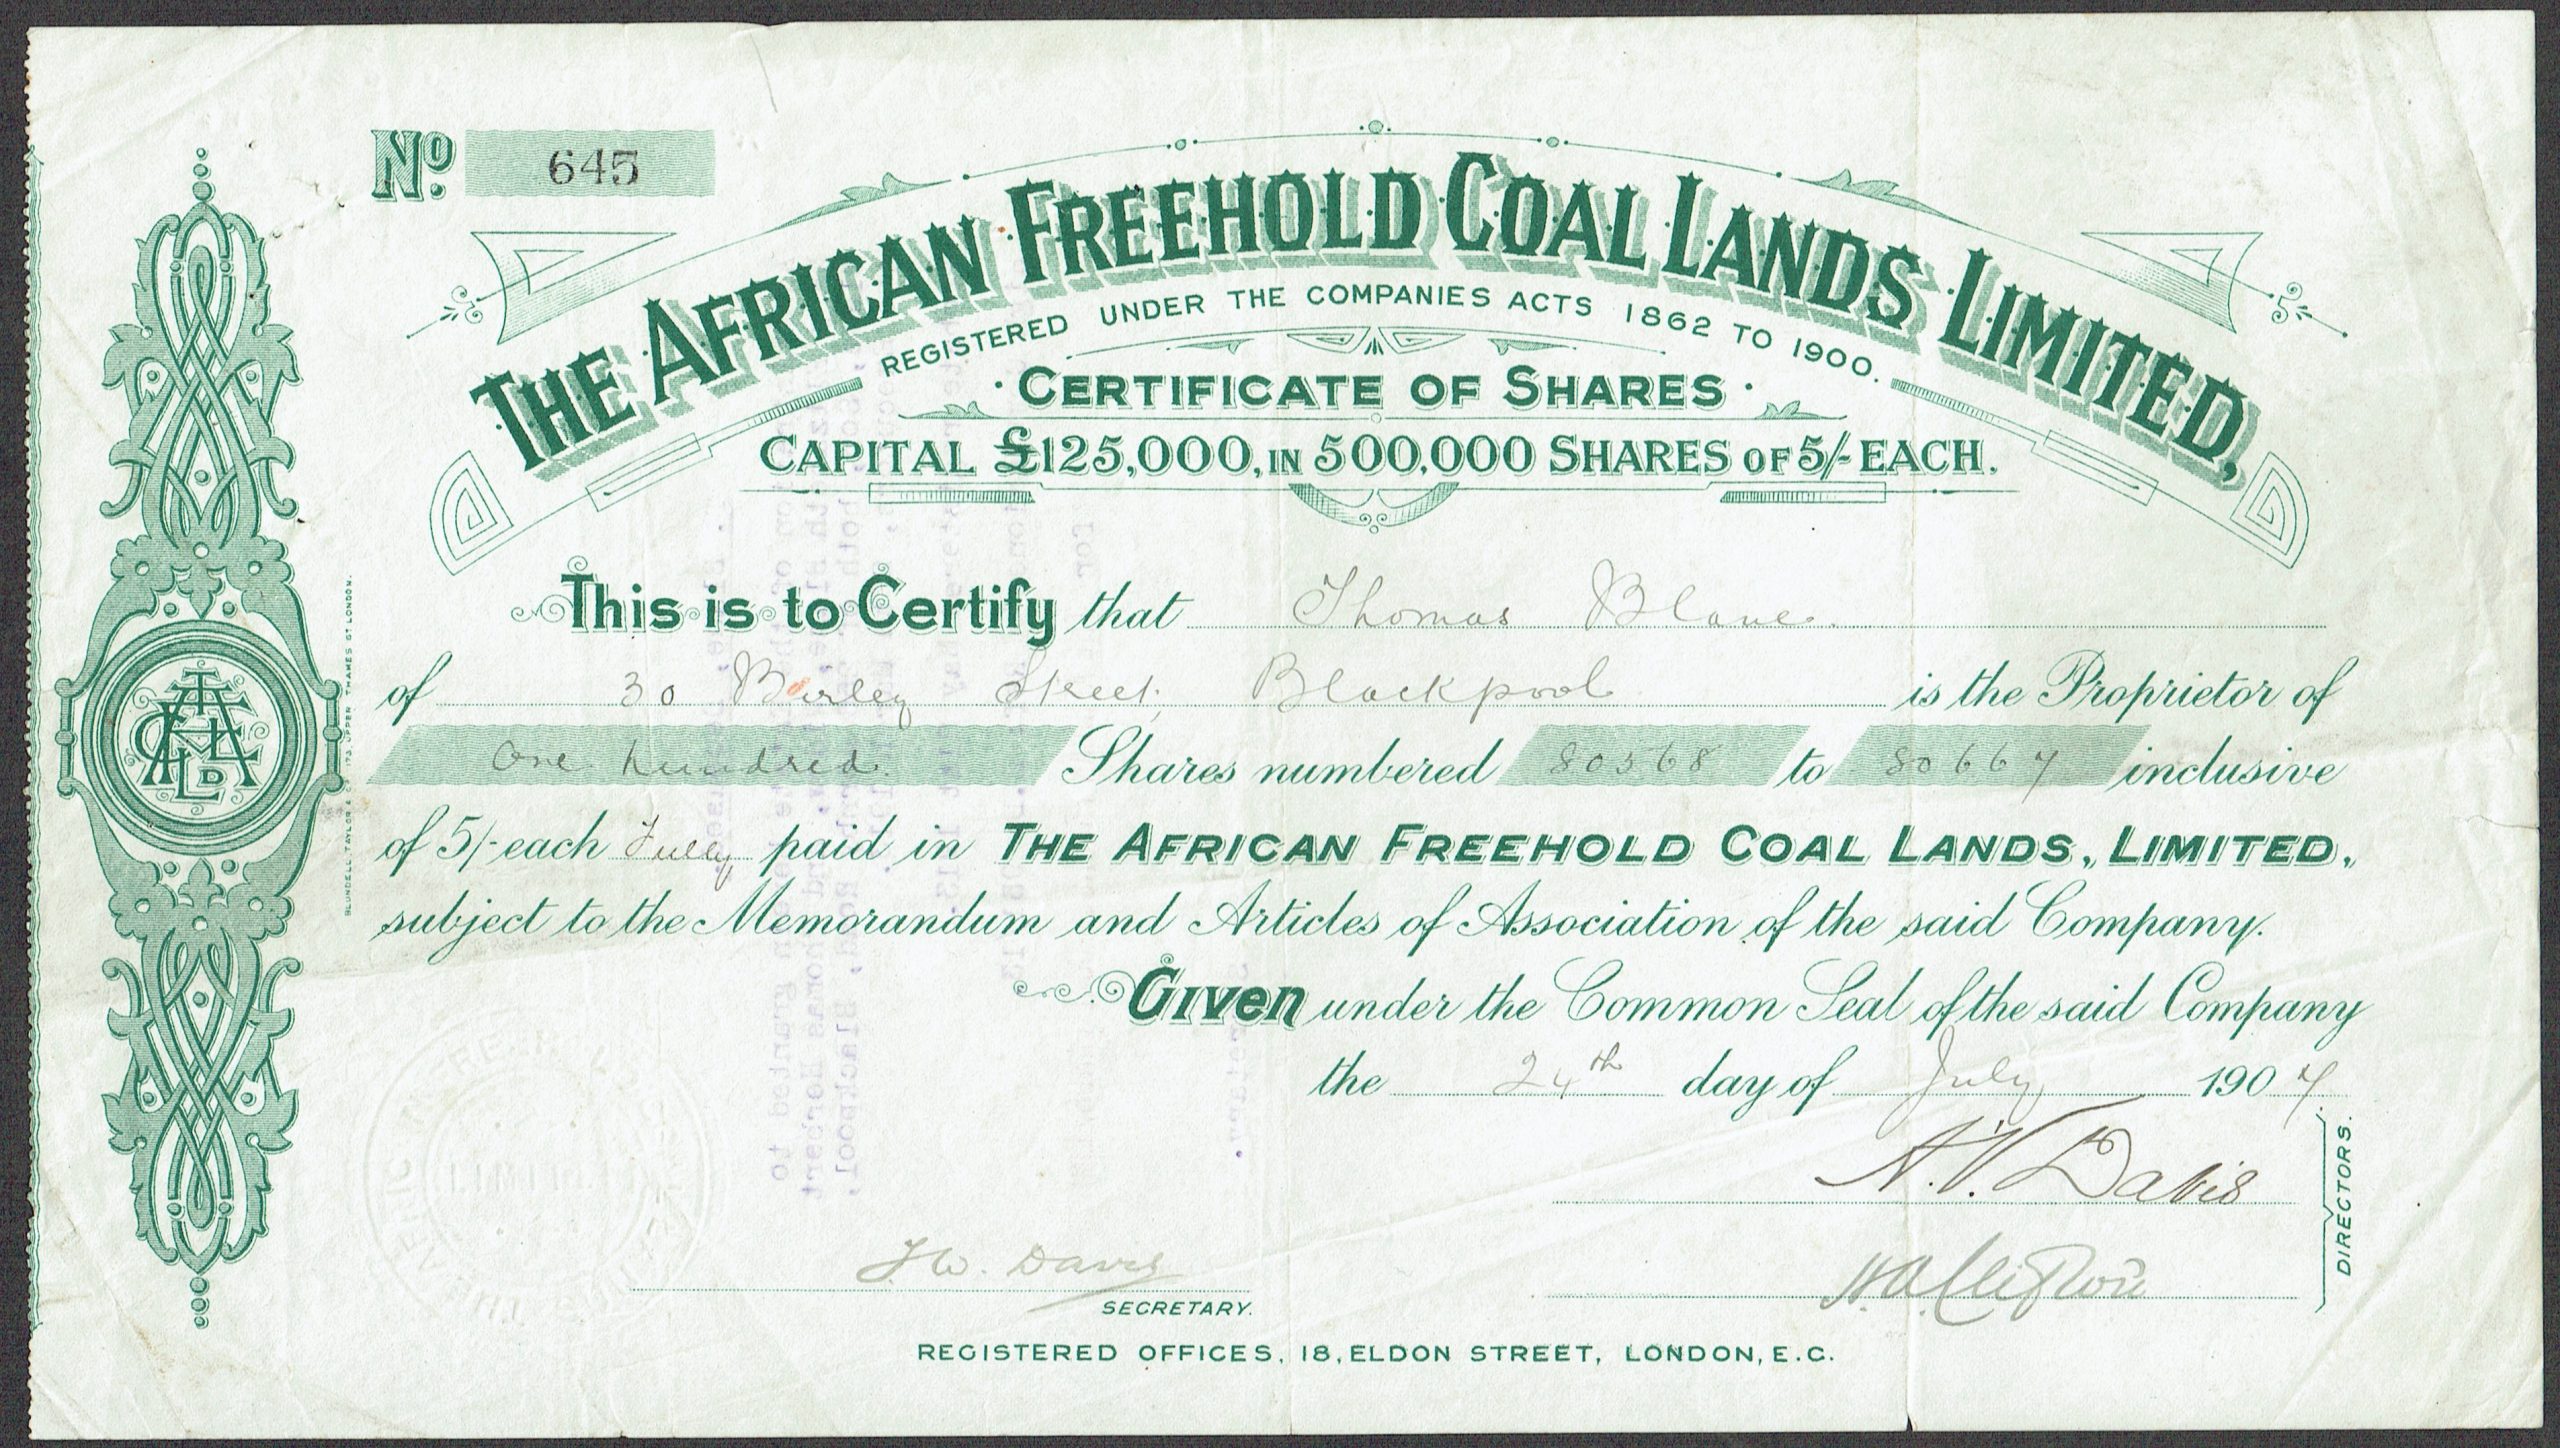 No. 645
THE AFRICAN FREEHOLD COAL LANDS LIMITED,
REGISTERED UNDER THE COMPANIES ACTS 1862 TO 1900.
CERTIFICATE OF SHARES
CAPITAL £125,000, IN 500,000 SHARES OF 5/- EACH.
This is to Certify that Thomas Blane.
of 30 Birley Street, Blackpool is the Proprietor of
One hundred Shares numbered 80568 to 80667 inclusive
of 5/- each Fully paid in THE AFRICAN FREEHOLD COAL LANDS, LIMITED,
subject to the Memorandum and Articles of Association of the said Company.
Given under the Common Seal of the said Company
the 24th day of July 1907.
DIRECTORS.
SECRETARY.
REGISTERED OFFICES, 18, ELDON STREET, LONDON, E.C.
BLUNDELL TAYLOR & Co 173, UPPER THAMES ST LONDON.
A. V. Davis
F. W. Davis